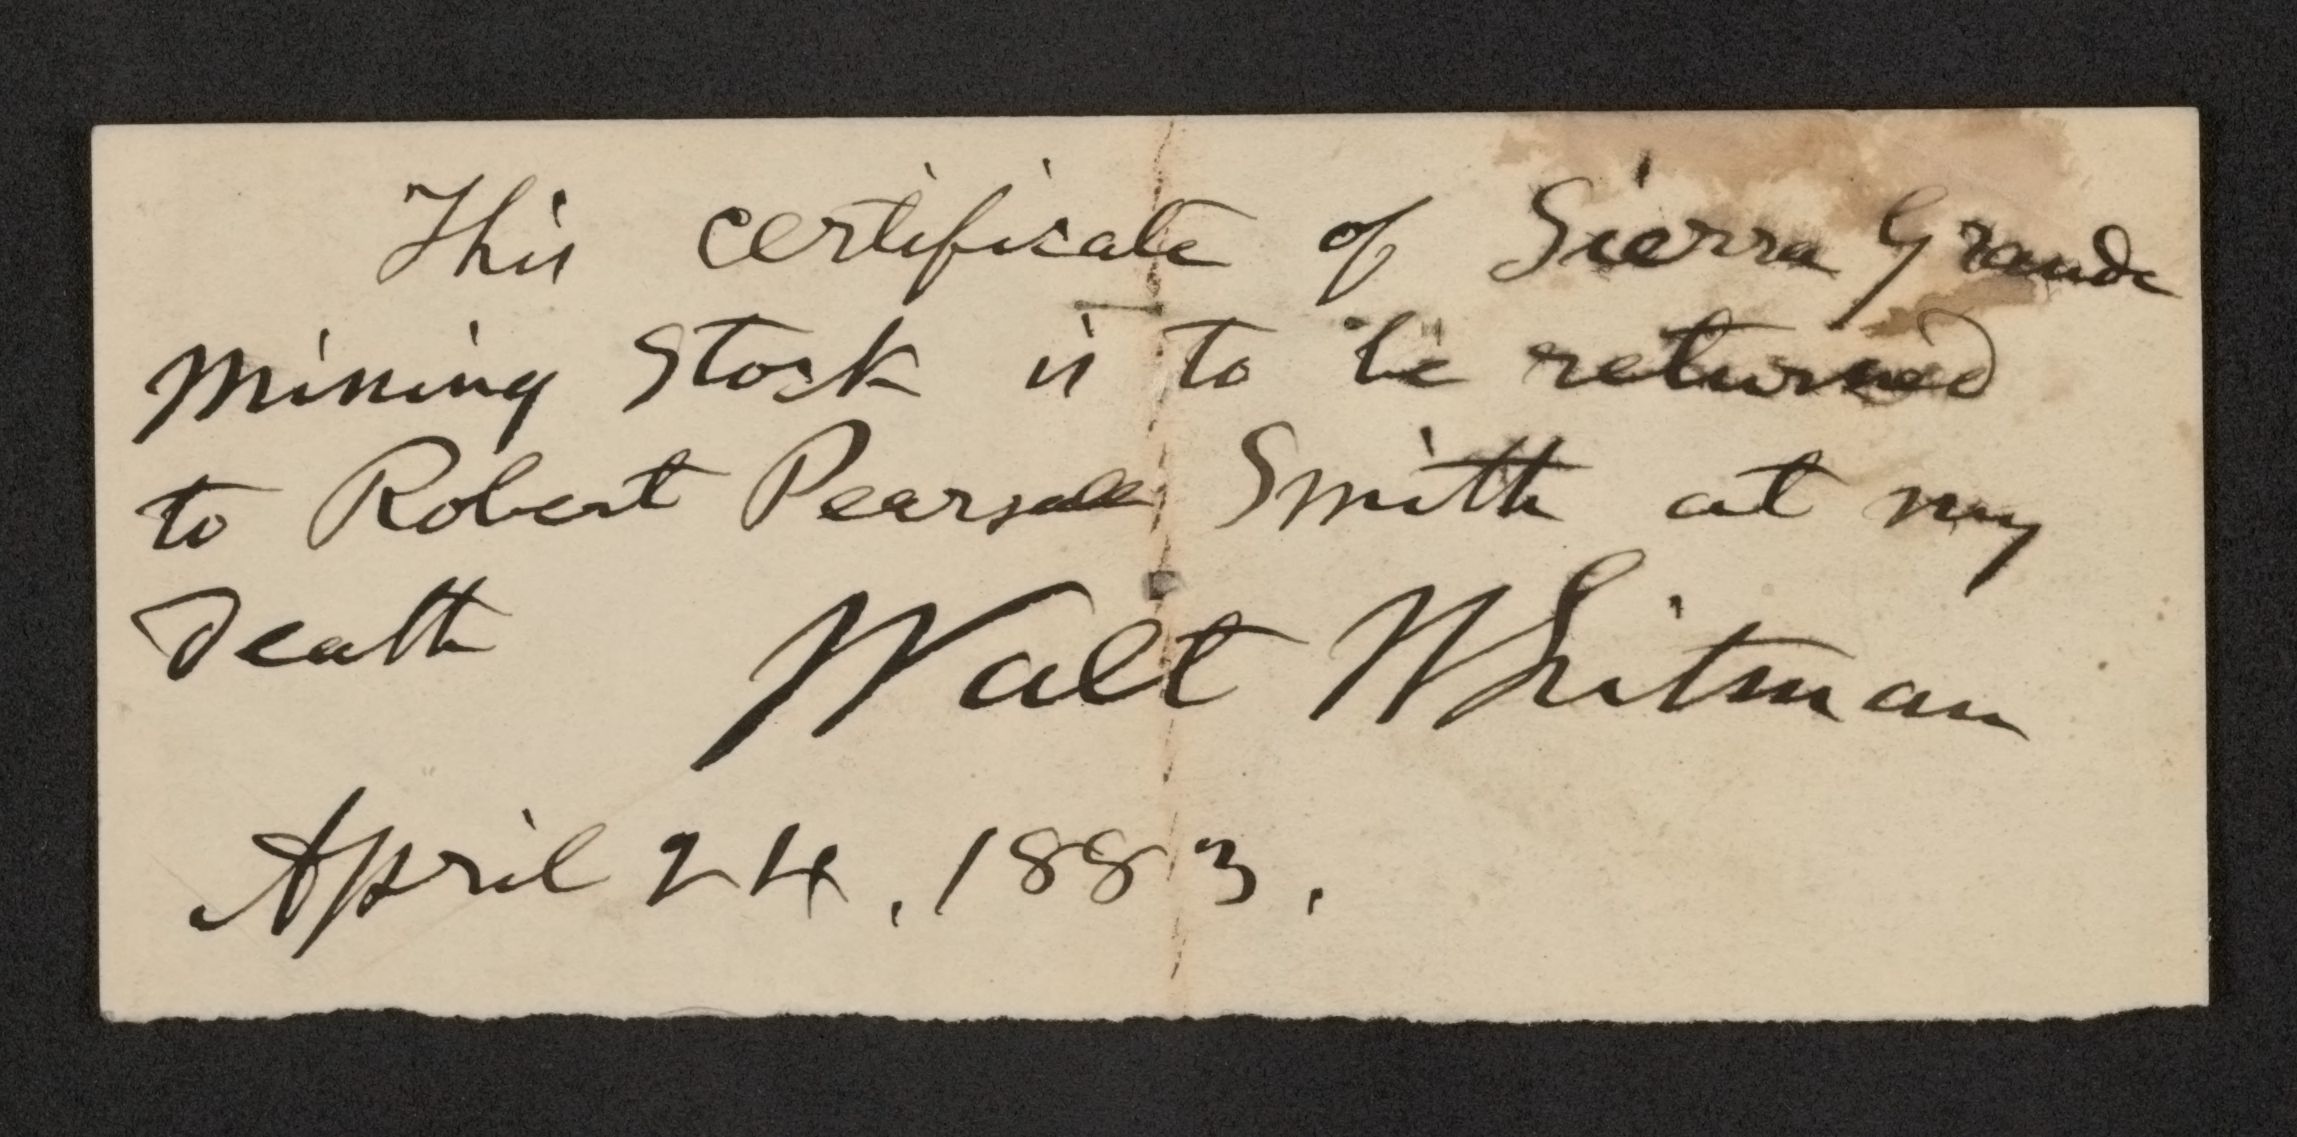 This certificate of Sierra Grande
Mining Stock is to be returned
to Robert Pearsall Smith at my
death Walt Whitman
April 24, 1883.